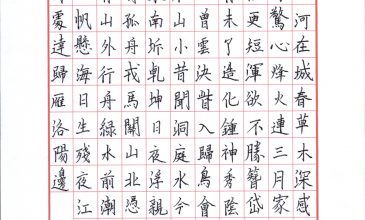 河在城春草木深感
驚心烽火連三月家
更短渾欲不勝簪岱
未了造化鍾神秀陰
曾雲決眥入歸鳥會
山小昔聞洞庭水今
南坼乾坤日夜浮親
孤舟戎馬關山北憑
山外行舟綠水前潮
帆懸海日生殘夜江
處達歸雁洛陽邊